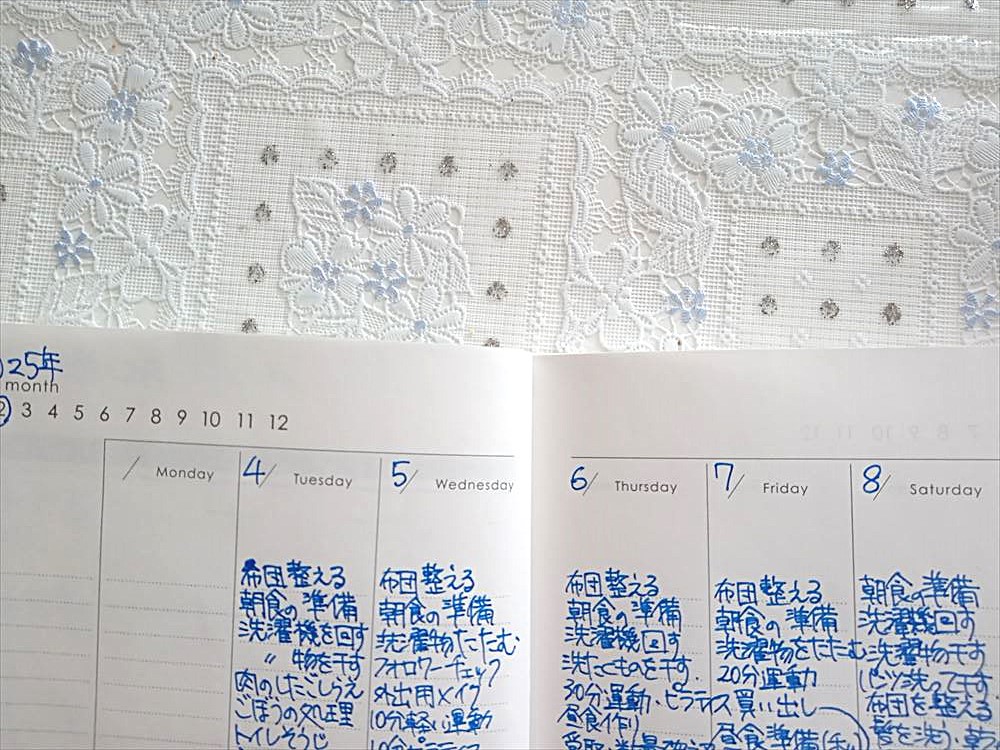 25年
month
2 3 4 5 6 7 8 9 10 11 12
/ Monday
4/ Tuesday
布団整える
朝食の準備
洗濯機を回す
〃 物を干す
肉のしたごしらえ
ごぼうの処理
トイレそうじ
5/ Wednesday
布団整える
朝食の準備
洗濯物たたむ
フォロワーチェック
外出用メイク
10分軽い運動
10分ピラティス
6/ Thursday
布団整える
朝食の準備
洗濯機回す
洗たくものを干す.
30分運動・ピラティス
昼食作り
7/ Friday
布団整える
朝食の準備
洗濯物をたたむ
20分運動
買い出し
昼食準備
8/ Saturday
朝食の準備
洗濯機回す
洗濯物干す
シーツ洗って干す
布団を整える
髪を洗う、